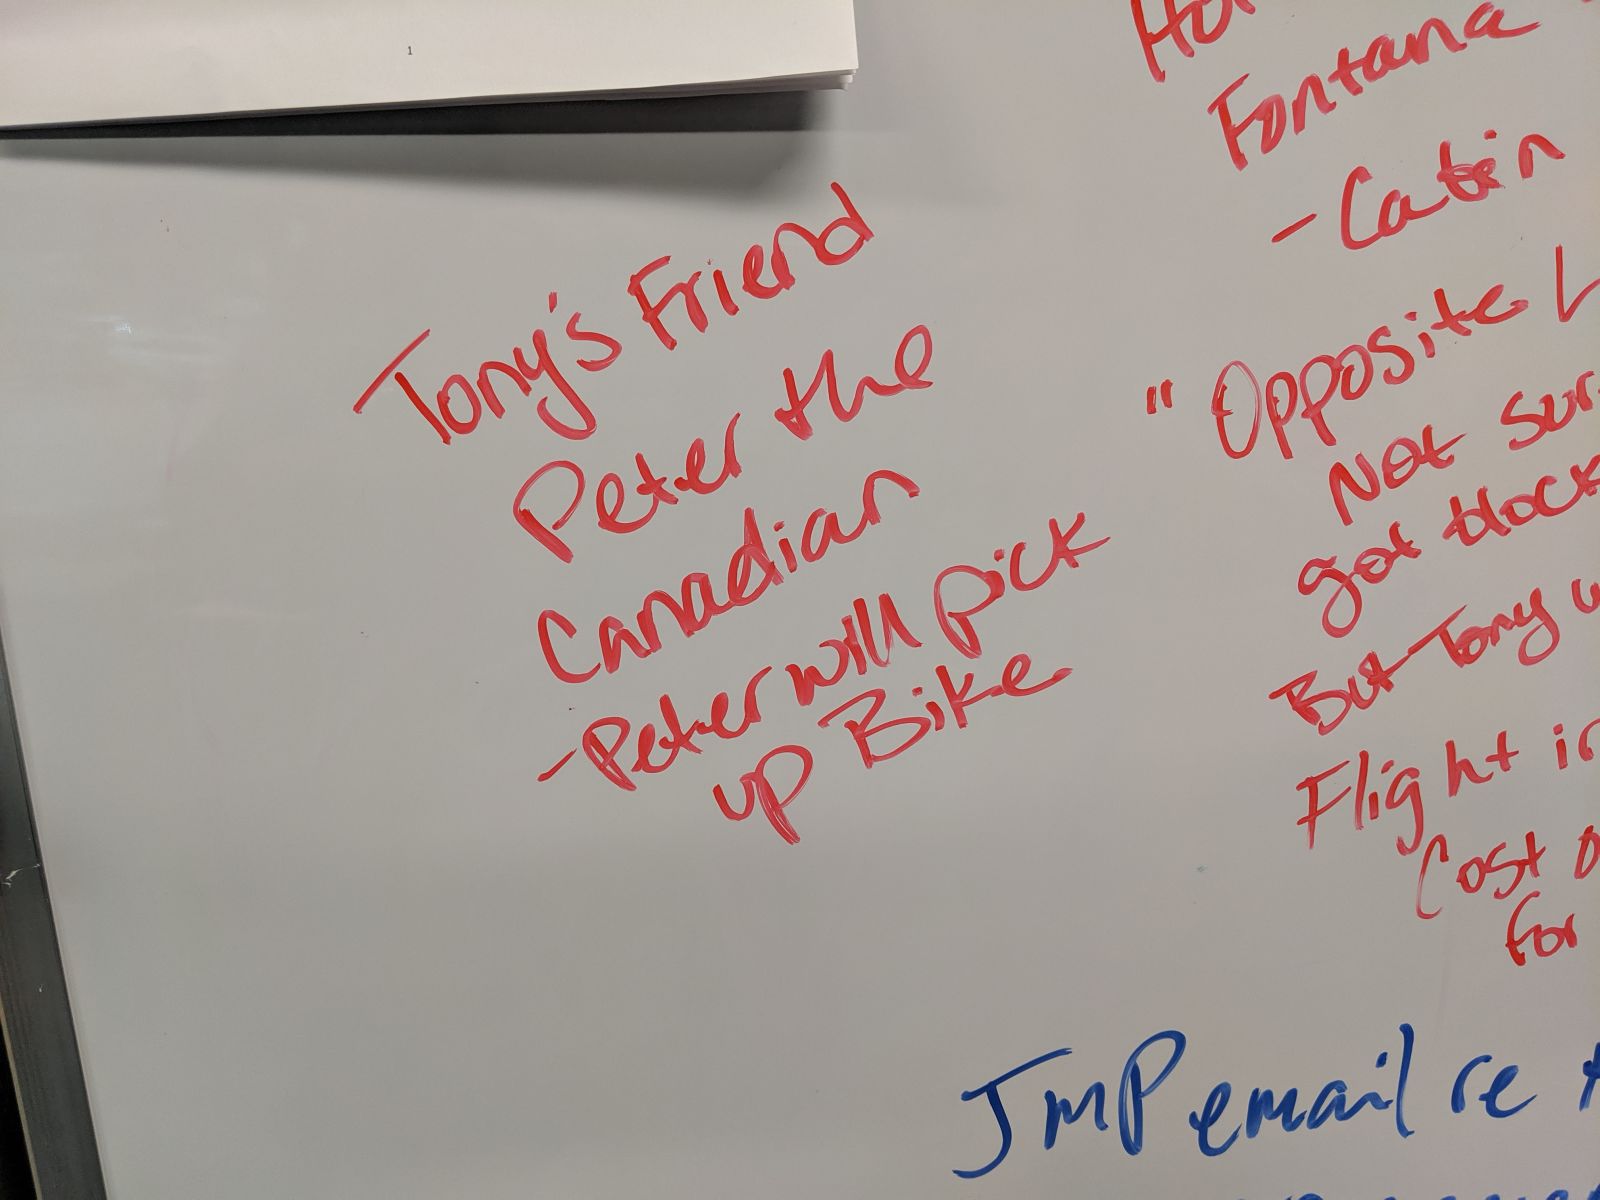 1
Tony's Friend
Peter the
Canadian
- Peter will pick
up Bike
Fontana
- Cabin
"Opposite
Not
got
But Tony
Flight
Cost
for
JMP email re